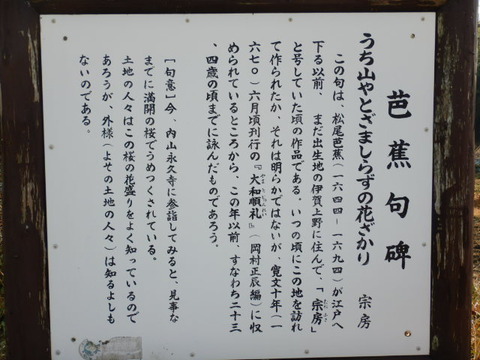 芭蕉句碑
うち山やとざましらずの花ざかり　宗房
この句は、松尾芭蕉(一六四四ー一六九四)が江戸へ
下る以前、まだ出生地の伊賀上野に住んで、「宗房」
と号していた頃の作品である。いつの頃にこの地を訪れ
て作られたか、それは明らかではないが、寛文十年(一
六七〇)六月頃刊行の『大和順礼』(岡村正辰編)に収
められているところから、この年以前、すなわち二十三
、四歳の頃までに詠んだものであろう。
［句意］今、内山永久寺に参詣してみると、見事な
までに満開の桜でうめつくされている。
土地の人々はこの桜の花盛りをよく知っているので
あろうが、外様(よその土地の人々)は知るよしも
ないのである。